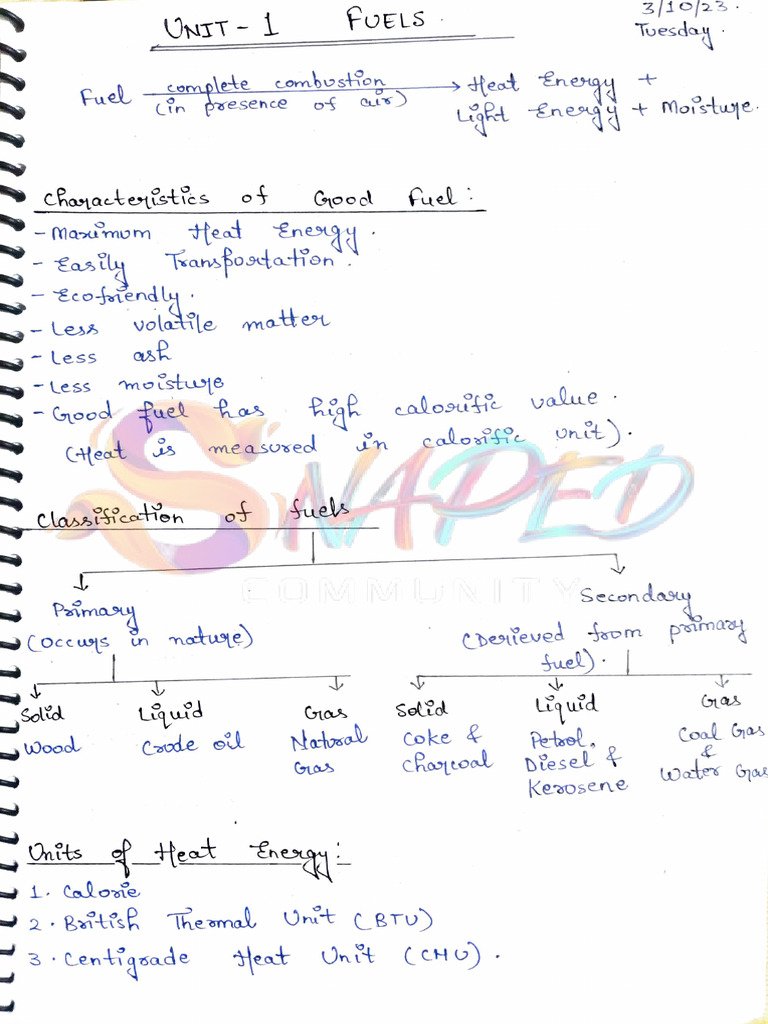 3/10/23.
UNIT-1 FUELS.
Tuesday.
Fuel complete combustion (in presence of air) → Heat Energy +
Light Energy + Moisture.
Characteristics of Good Fuel:
- Maximum Heat Energy.
- Easily Transportation.
- Ecofriendly.
- Less volatile matter
- Less ash
- Less moisture
- Good fuel has high calorific value.
(Heat is measured in calorific unit).
SNAPED
COMMUNITY
Classification of fuels
Primary
(Occurs in nature)
Secondary
(Derieved from primary
fuel).
Solid Liquid Gas Solid Liquid Gas
Wood Crude oil Natural Gas Coke & Charcoal Petrol, Diesel & Kerosene Coal Gas & Water Gas
Units of Heat Energy:
1. Calorie
2. British Thermal Unit (BTU)
3. Centigrade Heat Unit (CHU).